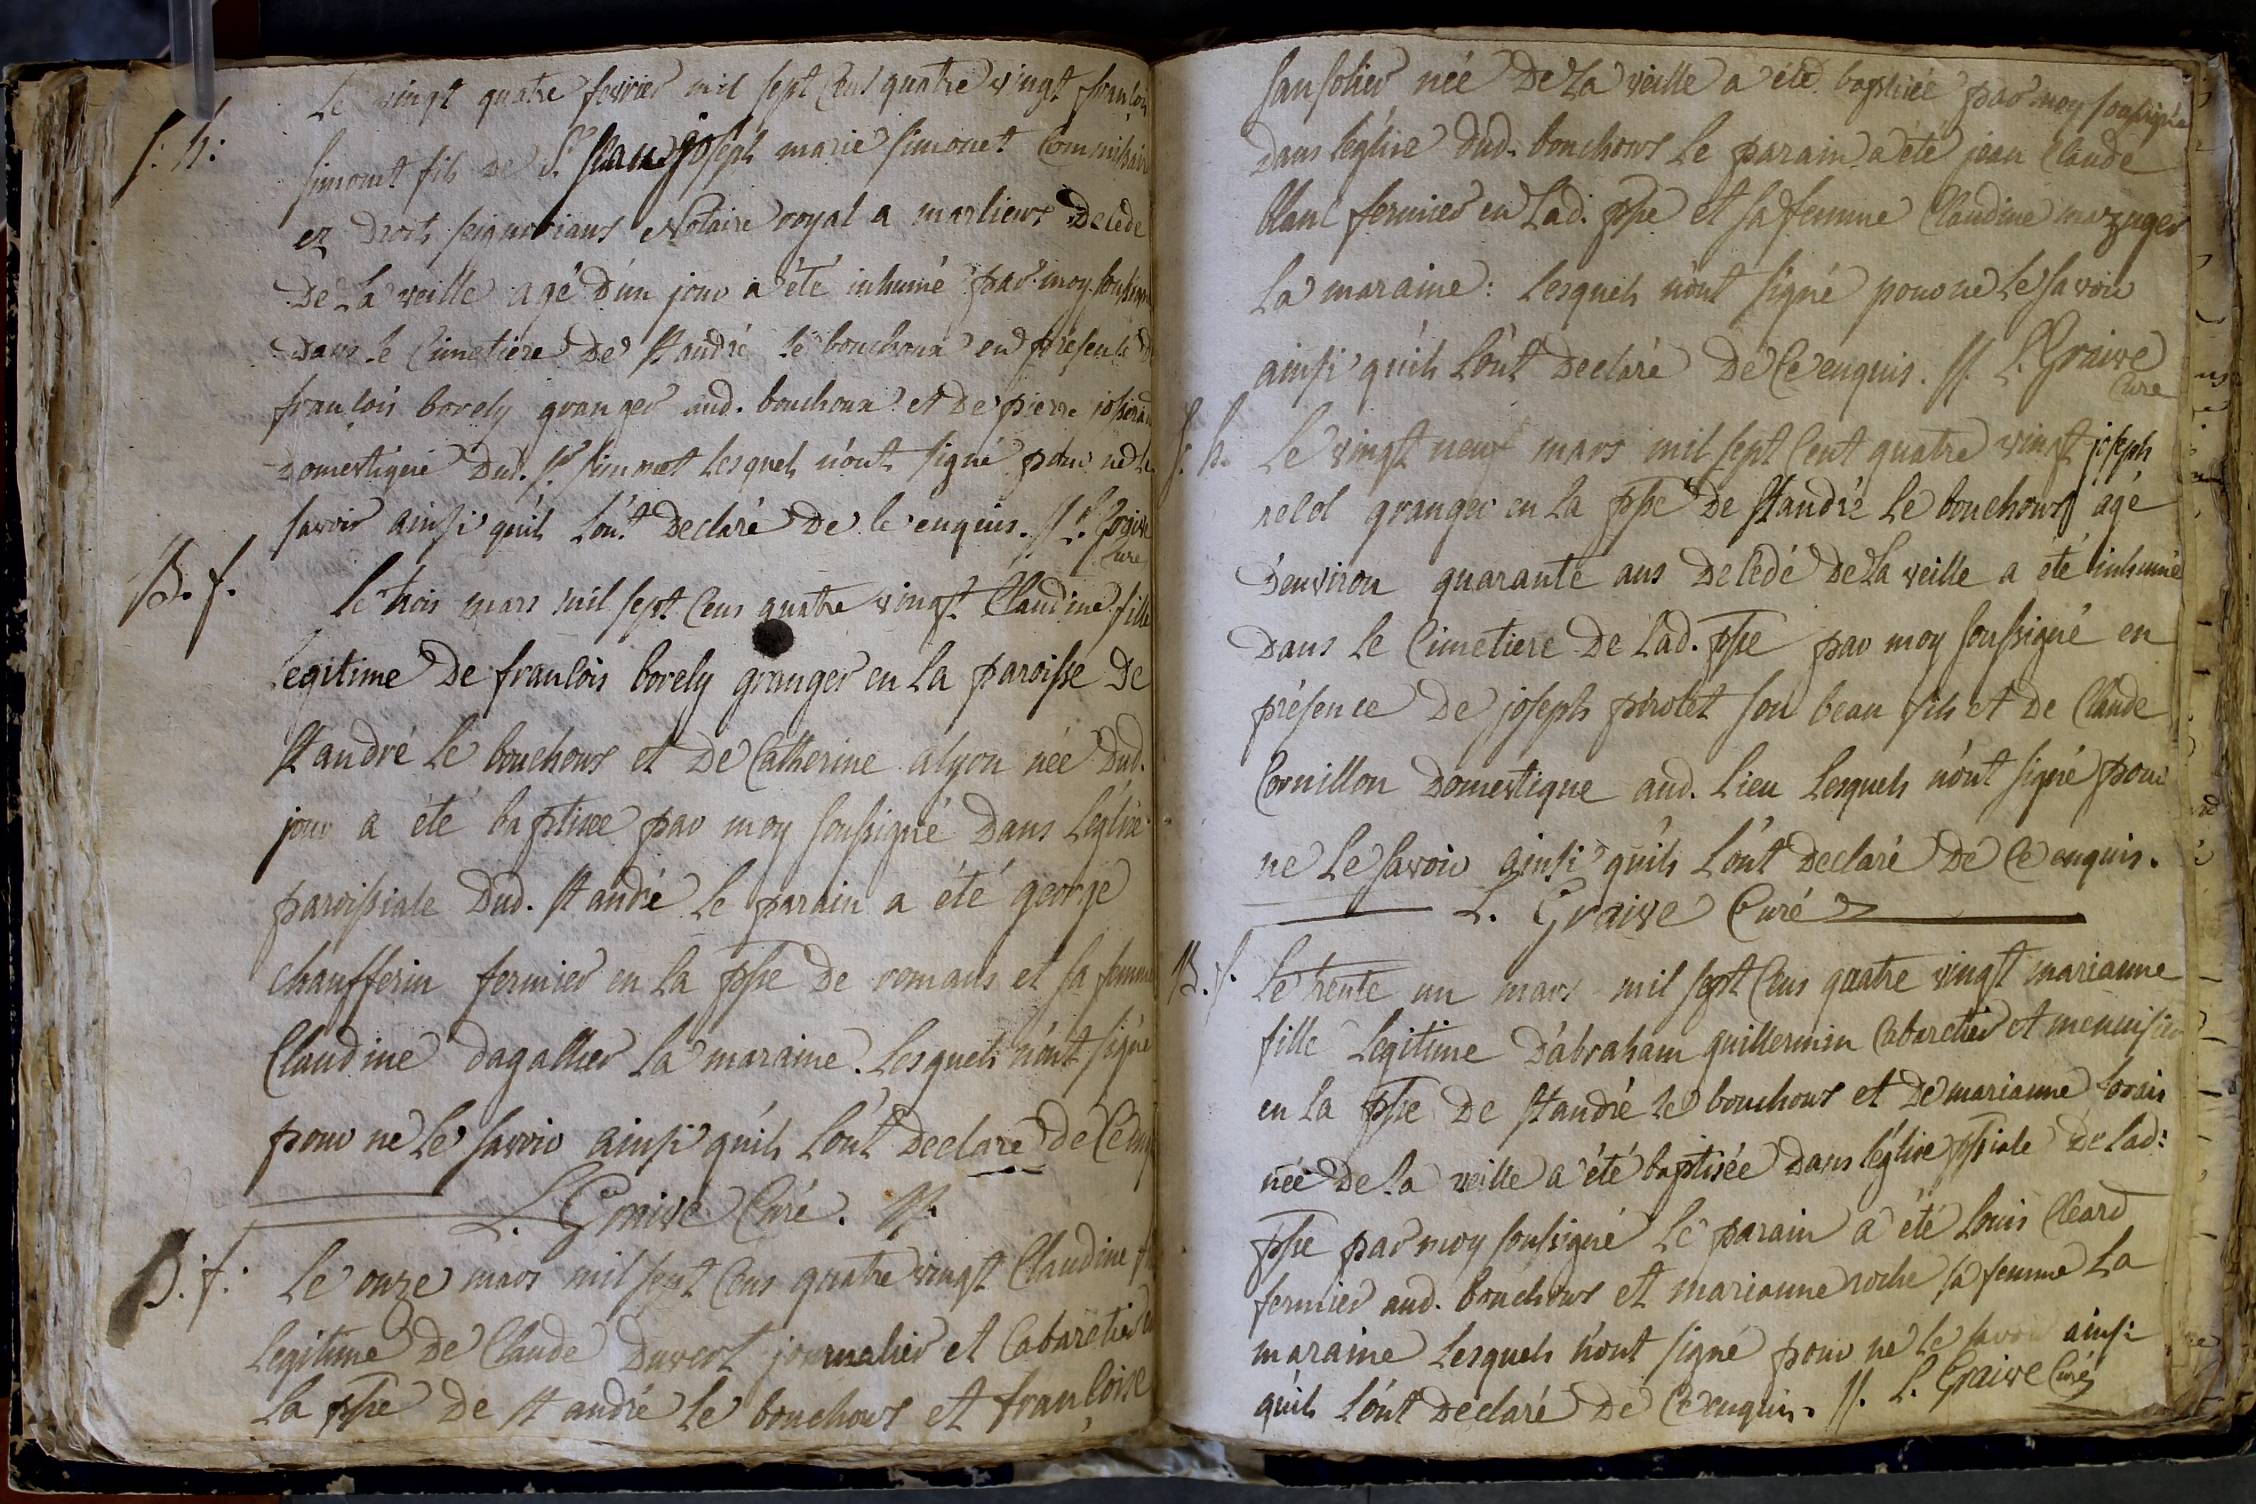 Le vingt quatre fevrier mil sept Cens quatre vingt françois
S: h:
simonet fils de Sr joseph marie simonet Commissaire
ez Droits seigneuriaux Notaire royal a marlieux Decedé
De La veille agé D'un jour a été inhumé par moy soussigné
Dans le Cimetiere De St andré le bouchoux en présence de
françois borely granger aud. bouchoux et De pierre
Domestique Dud. Sr simonet Lesquels n'ont signé pour ne Le
savoir ainsi qu'ils L'ont Declaré De Ce enquis. //. L. Graive
Curé
B. f.
Le trois mars mil sept Cens quatre vingt Claudine fille
Legitime De françois borely granger en La paroisse De
St andré Le bouchoux et De Catherine alyon née Dud.
jour a été baptisee par moy soussigné Dans L'eglise
paroissiale Dud. St andré Le parain a été george
chaufferin fermier en La ppse De romans et sa femme
Claudine dagallier La maraine. Lesquels n'ont signé
pour ne Le savoir ainsi qu'ils L'ont Declaré De Ce enq
L. Graive Curé. //.
B. f:
Le onze mars mil sept Cens quatre vingt Claudine
Legitime De Claude Duverot journalier et Cabaretier
La ppse De St andré Le bouchoux et françoise
sansolier née De La veille a été baptisée par moy soussigné
Dans L'église Dud. bouchoux Le parain a été jean Claude
blanc fermier en Lad. ppse et sa femme Claudine mazuger
La maraine: Lesquels n'ont signé pour ne Le savoir
ainsi qu'ils L'ont Declaré De Ce enquis. //. L. Graive
Curé
S. h.
Le vingt neuf mars mil sept Cent quatre vingt joseph
granger en La ppse De St andré Le bouchoux agé
D'environ quarante ans Decédé De La veille a été inhumé
Dans Le Cimetiere De Lad. ppse par moy soussigné en
présence De joseph pirolet son beau fils et De Claude
Cornillon Domestique aud. Lieu Lesquels n'ont signé pour
ne Le savoir ainsi qu'ils L'ont Declaré De Ce enquis.
L. Graive Curé
B. f.
Le trente un mars mil sept Cens quatre vingt marianne
fille Legitime D'abraham guillermin Cabaretier et menuisier
en La ppse De St andré Le bouchoux et De marianne
née De La veille a été baptisée Dans L'église ppsiale De Lad:
ppse par moy soussigné Le parain a été Louis Cléard
fermier aud. bouchoux et marianne roche sa femme La
maraine Lesquels n'ont signé pour ne Le savoir ainsi
qu'ils L'ont Declaré De Ce enquis. //. L. Graive Curé